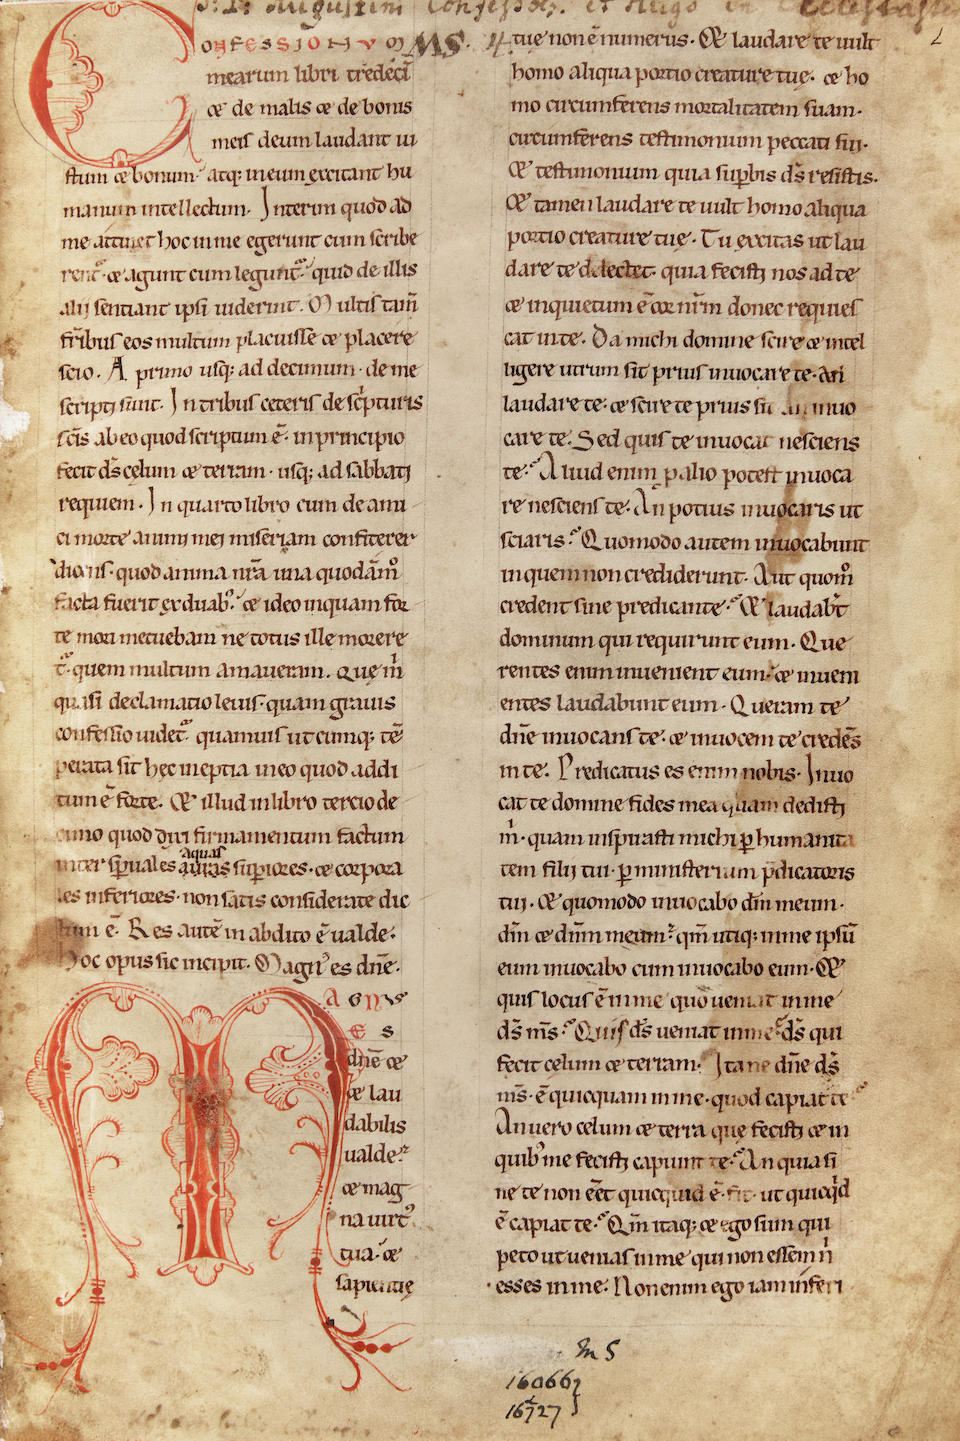 S. Augustini Confessiones. et Hugo in Ecclesiasten
CONFESSIONVM MS.
mearum libri tredeci
& de malis & de bonis
meis deum laudant iu
stum & bonum. atq; in eum excitant hu
manum intellectum. Interim quod ad
me attinet hoc in me egerunt cum scribe
rent̃. & agunt cum legunt̃. quid de illis
alij sentiant ipsi uiderint. Multis tam̃
fr̃ibus eos multum placuisse & placere
scio. A primo usq; ad decimum. de me
scripti sunt. In tribus ceteris de sc̃pturis
sc̃is ab eo quod scriptum ẽ. in principio
fecit ds̃ celum & terram. usq; ad sabbati
requiem. In quarto libro cum de ami
ci morte animi mei miseriam confiterer
dicens. quod anima nr̃a una quodãmo
facta fuerit ex duab;. & ideo inquam for
te mori metuebam ne totus ille morere
t̃. quem multum amaueram. Que m̃
quasi declamatio leuis. quam grauis
confessio uidet̃. quamuis utcumq; tẽ
perata sit hec ineptia in eo quod addi
tum ẽ forte. & illud in libro tercio de
cimo quod dixi firmamentum factum
aquas
inter sp̃uales auras sup̃iores. & corpora
les inferiores. non satis considerate dic
tum ẽ. Res autẽ in abdito ẽ ualde.
Hoc opus sic incipit. Magn; es dñe.
MAGNVS
ES
dñe &
& lau
dabilis
ualde.
& mag
na uirt;
tua. &
sapientie
tuę non ẽ numerus. & laudare te uult
homo aliqua portio creature tuę. & ho
mo circumferens mortalitatem suam.
circumferens testimonium peccati sui.
& testimonium quia sup̱bis ds̃ resistis.
& tamen laudare te uult homo aliqua
portio creature tuę. Tu excitas ut lau
dare te delectet. quia fecisti nos ad te
& inquietum ẽ cor nr̃m donec requies
cat in te. Da michi domine scire & intel
ligere utrum sit prius inuocare te. an
laudare te. & scire te prius sit an inuo
care te. Sed quis te inuocat nesciens
te. Aliud enim p̱ alio potest inuoca
re nesciens te. An potius inuocaris ut
sciaris. Quomodo autem inuocabunt
in quem non crediderunt. Aut quom̃
credent sine predicante. & laudabt̃
dominum qui requirunt eum. Que
rentes enim inuenient eum. & inueni
entes laudabunt eum. Queram te
dñe inuocans te. & inuocem te credẽs
in te. Predicatus es enim nobis. Inuo
cat te domine fides mea quam dedisti
m̃. quam inspirasti michi p̱ humanita
tem filij tui. p̱ ministerium p̃dicatoris
tui. & quomodo inuocabo dm̃ meum.
dm̃ & dñm meum. qm̃ utiq; in me ipsũ
eum inuocabo cum inuocabo eum. &
quis locus ẽ in me quo ueniat in me
ds̃ ms̃. Quis ds̃ ueniat in me. ds̃ qui
fecit celum & terram. Itane dñe ds̃
ms̃. ẽ quicquam in me. quod capiat te
An uero celum & terra que fecisti & in
quib; me fecisti capiunt te. An quia si
ne te non eẽt quicquid ẽ. fit. ut quicq̃d
ẽ capiat te. Qm̃ itaq; & ego sum qui
peto ut uenias in me qui non essem ñ
esses in me. Non enim ego iam inferi
MS
16066
16727